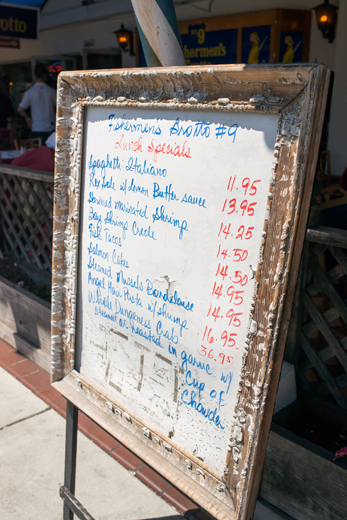 otto
№9
Fishermen's
Grotto
Fishermens Grotto #9
Lunch Specials
Spaghetti Italiano 11.95
Rex Sole w/ Lemon Butter sauce 13.95
marinated Shrimp 14.25
Bay Shrimp Creole 14.50
Fish Tacos 14.50
Salmon Cakes 14.95
Steamed Mussels Bordelaise 14.95
Angel Hair Pasta w/ shrimp 16.95
Whole Dungeness Crab 36.95
steamed or roasted in garlic w/
Cup of
Chowder